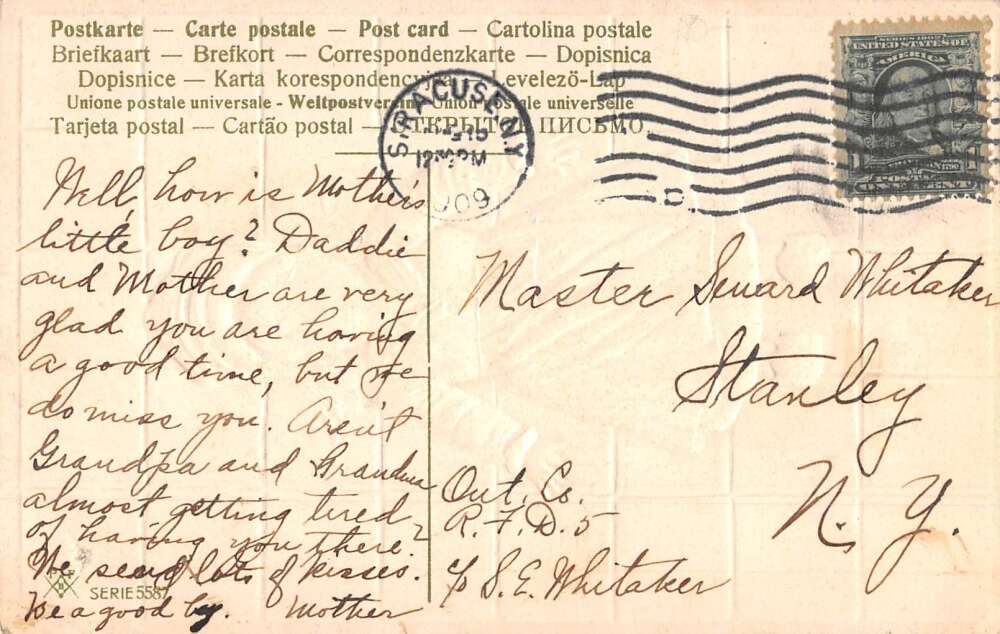 Postkarte — Carte postale — Post card — Cartolina postale
Briefkaart — Brefkort — Correspondenzkarte — Dopisnica
Dopisnice — Karta korespondencyjna — Levelező-Lap
Unione postale universale - Weltpostverein - Union postale universelle
Tarjeta postal — Cartão postal — ОТКРЫТОЕ ПИСЬМО.
SYRACUSE, N.Y.
1909
SERIES 1902
UNITED STATES OF
AMERICA
1 1
POSTAGE
ONE CENT
D
Well, how is Mother's
little boy? Daddie
and Mother are very
glad you are having
a good time, but we
do miss you. Aren't
Grandpa and Grandma
almost getting tired
of having you there?
We send lots of kisses.
Be a good boy. Mother
SERIE 5587
Master Seward Whitaker
Stanley
N. Y.
Ont. Co.
R. F. D. 5
c/o S. E. Whitaker